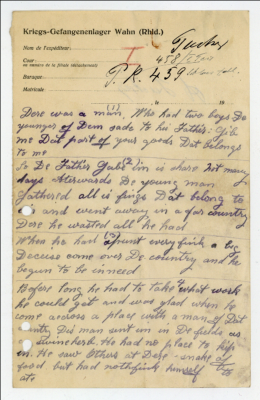 Kriegs-Gefangenenlager Wahn (Rhld.)
Nom de l'expediteur:
Tucker
Cour:
I
458
ou numéro de la feuille
Baraque:
P.K. 459
Matricule
19
Dere was a man, Who had two boys De
younger of Dem sade to his Father. Gib
me Dat part of your goods Dat belongs
to me
So De Father gabe 'im is share Not many
days Aterwards De young man
Gathered all is fings Dat belong to
'im and went away in a far country
Dere he wasted all he had
When he had spunt every fink a big
Decease came over De country and he
begun to be in need
Before long he had to take what work
he could get and was glad when he
come across a place with a man of Dat
cuntry Dis man sent im in De fields as
a Swineherb. He had no place to kip
in. He saw Others at Dere of
food but had nothfink himself to
ate